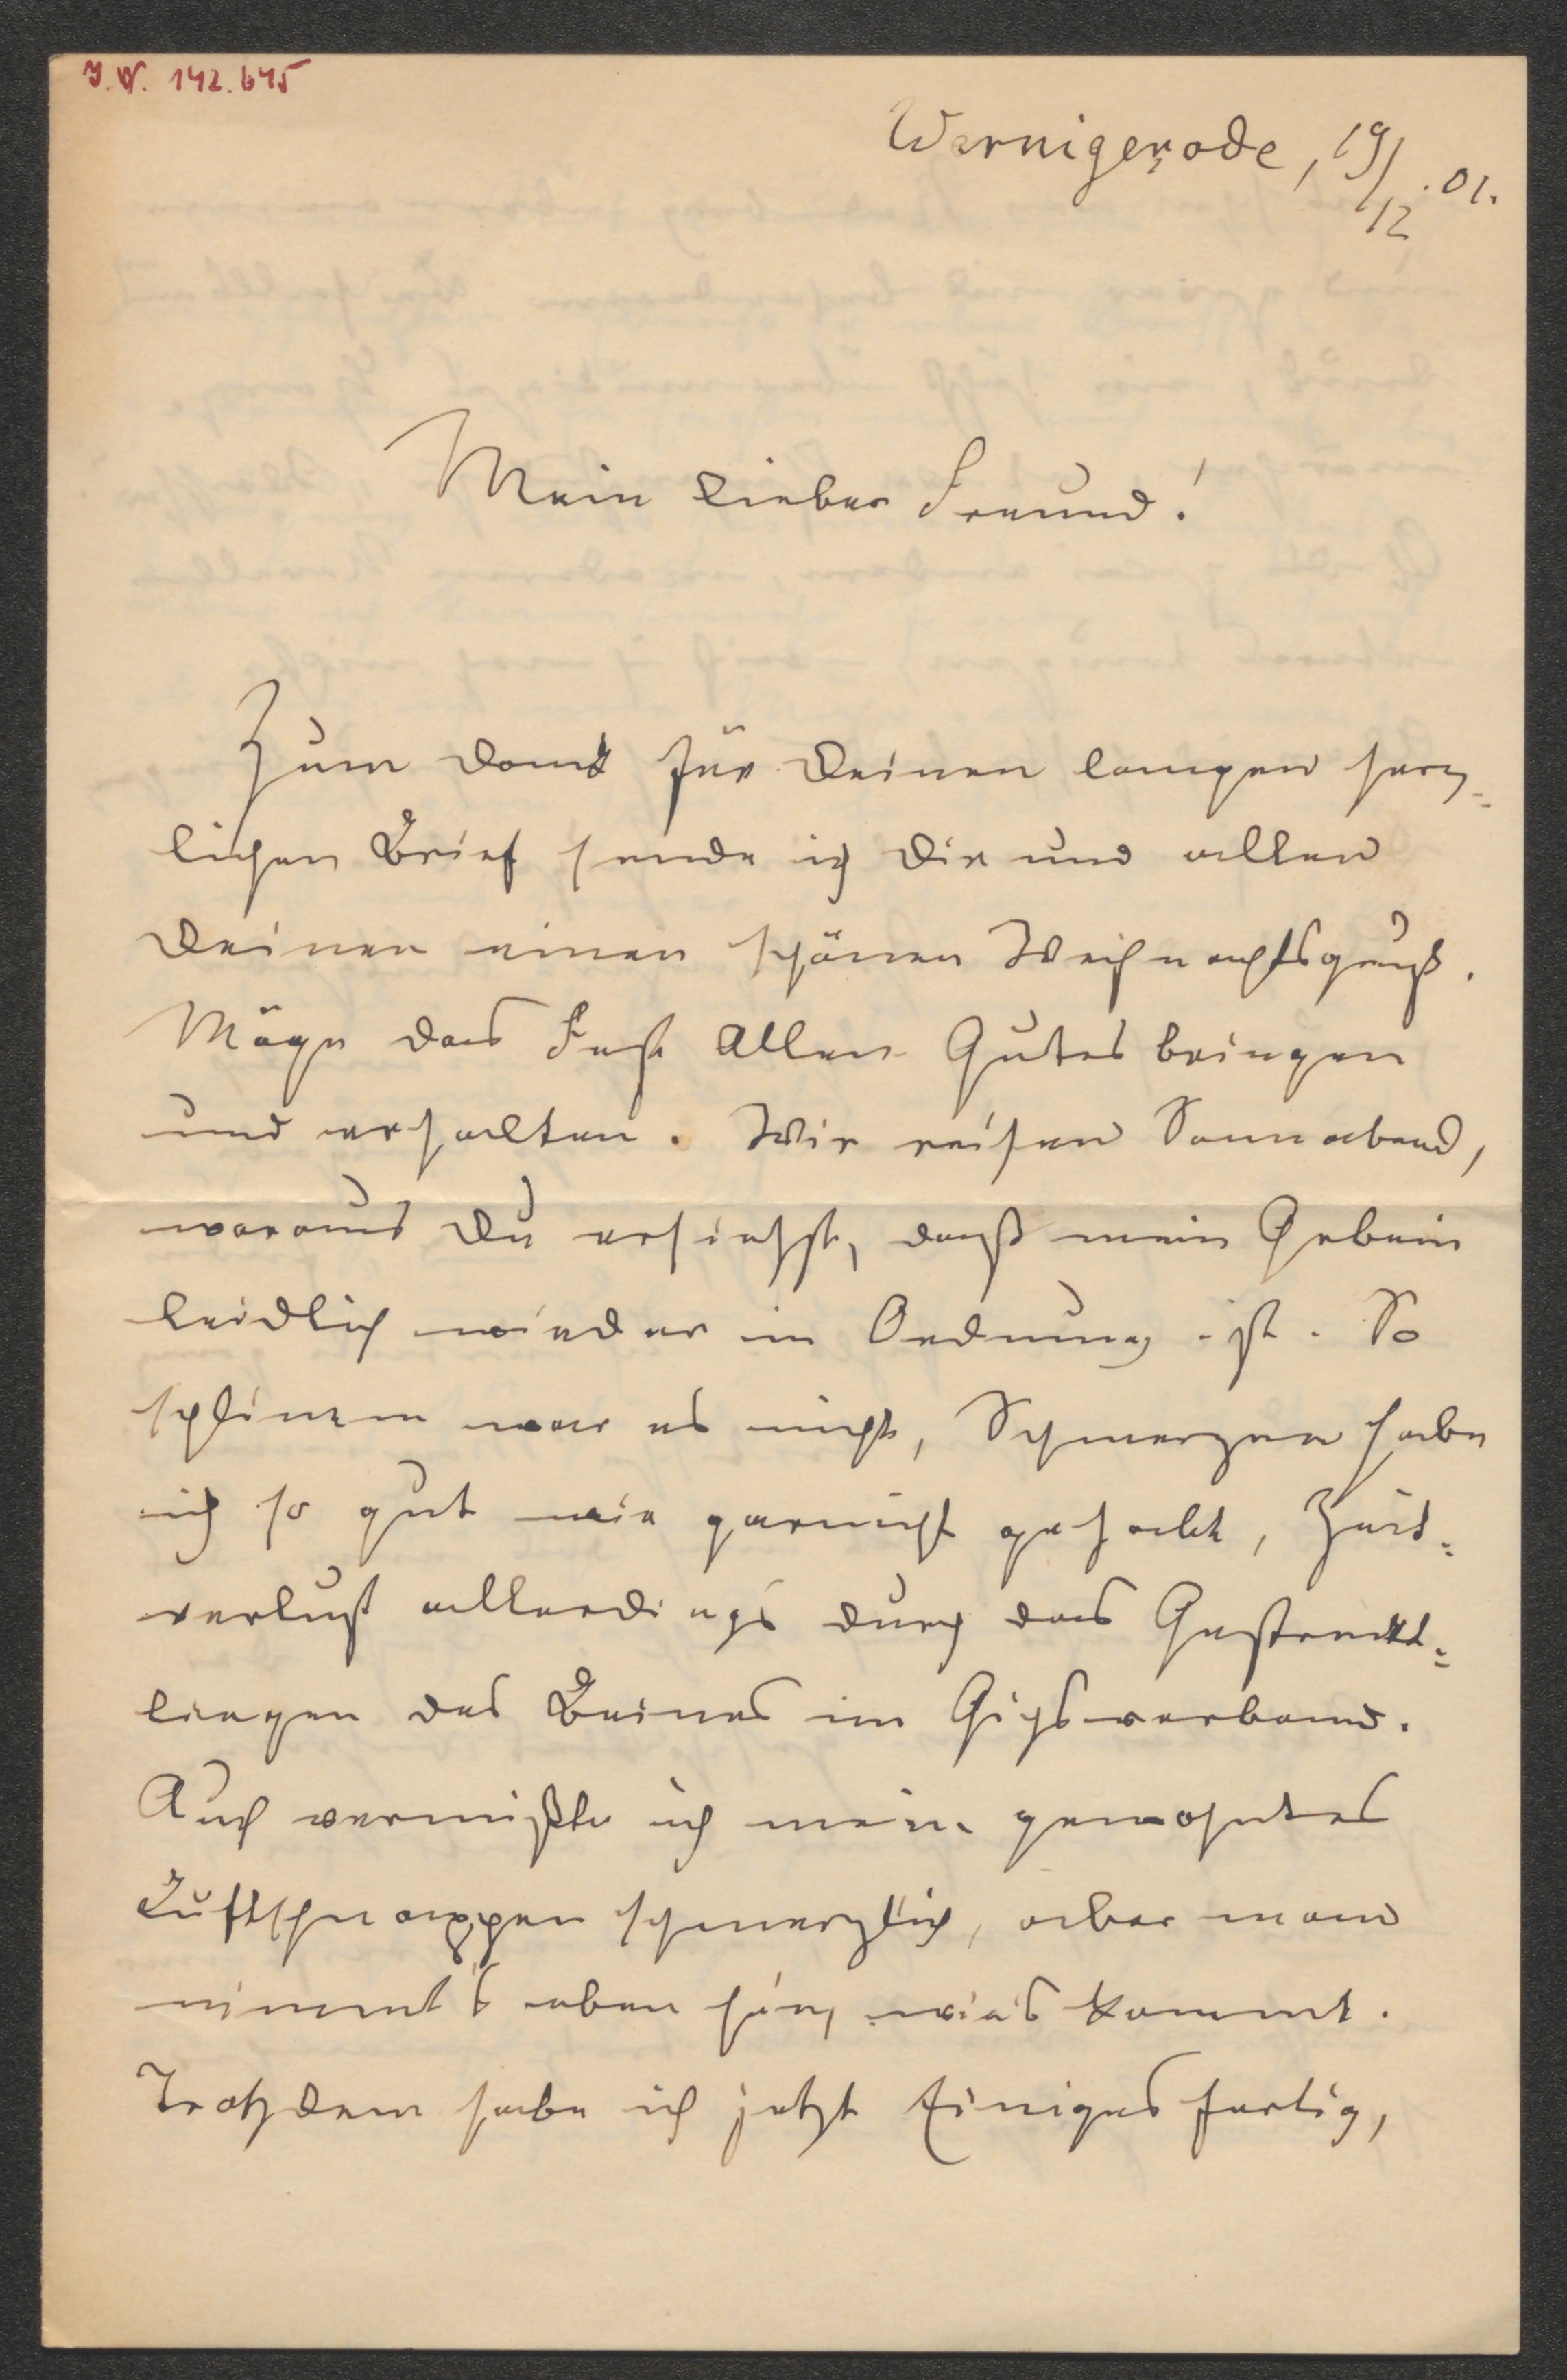 J.N. 142.645
Wernigerode, 19/12.01.
Mein lieber Freund!
Zum Dank für Deinen langen herz-
lichen Brief sende ich Dir und allen
Deinen einen schönen Weihnachtsgruß.
Möge das Fest Allen Gutes bringen
und erhalten. Wir reisen Sonnabend,
woraus Du ersiehst, daß mein Gebein
leidlich wieder in Ordnung ist. So
schlimm war es nicht, Schmerzen habe
ich so gut wie garnicht gehabt, Zeit-
verlust allerdings durch das Gestreckt-
liegen des Beines im Gipsverband.
Auch vermißte ich mein gewohntes
Luftschnappen schmerzlich, aber man
nimmt's eben hin, wie's kommt.
Trotzdem habe ich jetzt Einiges fertig,